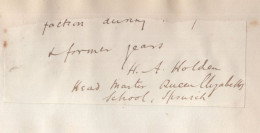 faction during
& former years
H. A. Holden
Head Master Queen Elizabeth's
School, Ipswich